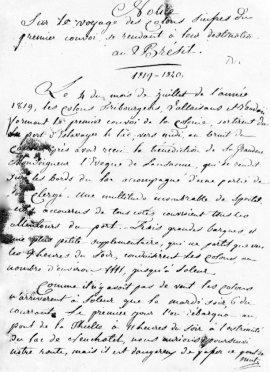 Notice
Sur le voyage des colons suisses du
premier convoi, se rendant à leur destination
au Brésil
1819-1820.
Le 4 du mois de juillet de l'année
1819, les colons Fribourgeois, Valaisans et Vaudois
formant le premier convoi de la colonie, sortirent du
port d'Estavayer le lac, vers midi, au bruit du
canon, après avoir reçu la bénédiction de Sa Grandeur
Monseigneur l'Evêque de Lausanne, qui se rendit
sur les bords du lac accompagné d'une partie du
Clergé. Une multitude innombrable de
accourus de tous cotés couvraient tous les
alentours du port. Trois grandes barques et
une petite supplémentaire, qui ne partit que vers
les 9 heures du soir, conduisirent les colons au
nombre d'environ 1111, jusqu'à Soleure.
Comme il n'y avait pas de vent les colons
n'arrivèrent à Soleure que le mardi soir 6 du
courant. Le premier jour l'on débarqua au
pont de la Thielle à 11 heures du soir à l'extrémité
du lac de Neuchatel, nous aurions poursuivi
notre route, mais il est dangereux de passer ce pont de
nuit.